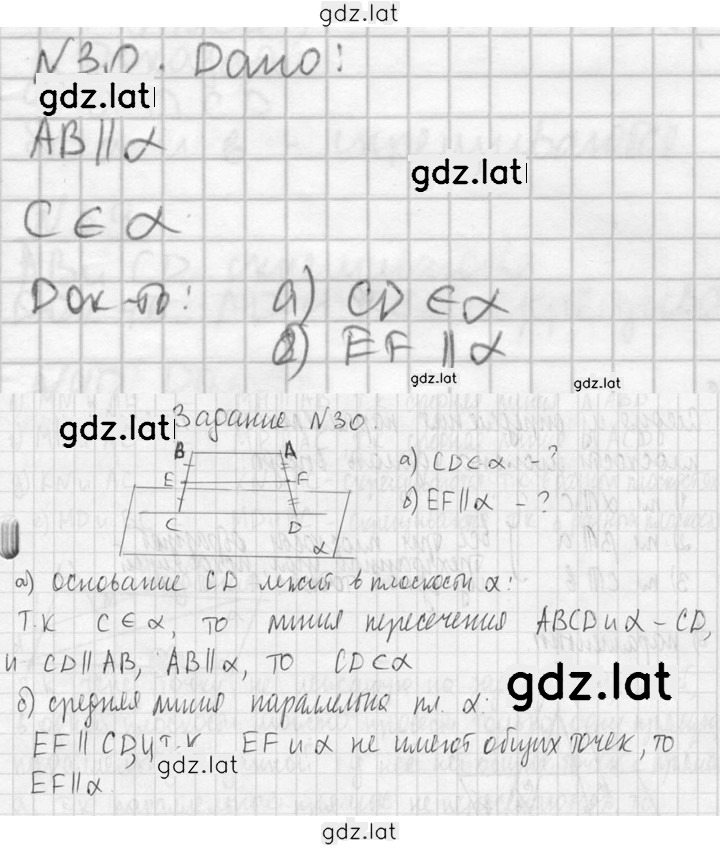 gdz.lat
N30. Дано:
gdz.lat
AB || α
gdz.lat
C ∈ α
Док-ть: а) CD ∈ α
б) EF || α
gdz.lat
gdz.lat
Задание N30.
gdz.lat
B A
E F
C D
α
а) CD⊂α - ?
б) EF||α - ?
а) основание CD лежит в плоскости α:
Т.к C ∈ α, то линия пересечения ABCD и α - CD,
и CD || AB, AB || α, то CD ⊂ α
gdz.lat
б) средняя линия параллельна пл. α:
EF || CD, и т.к EF и α не имеют общих точек, то
gdz.lat
EF || α.
gdz.lat